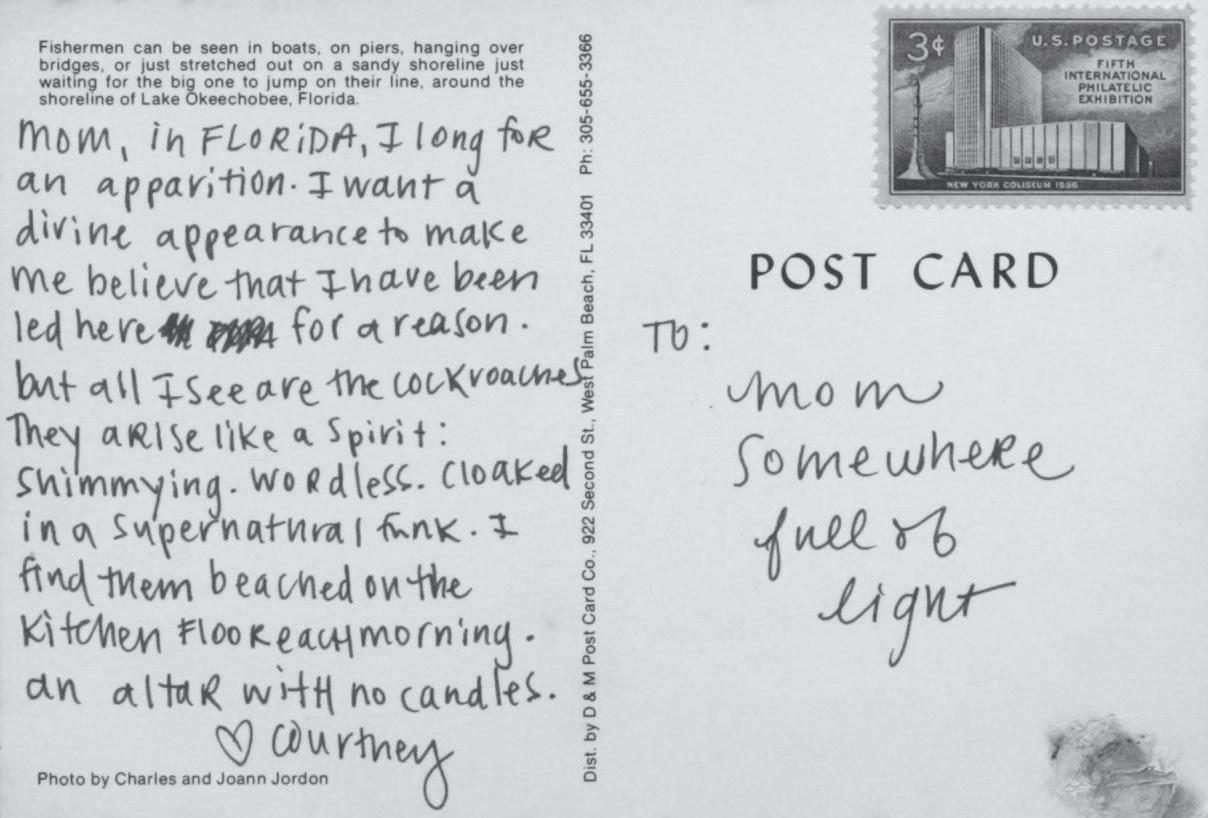 Fishermen can be seen in boats, on piers, hanging over
bridges, or just stretched out on a sandy shoreline just
waiting for the big one to jump on their line, around the
shoreline of Lake Okeechobee, Florida.
Mom, in FLORiDA, I long foR
an apparition. I want a
divine appearance to make
me believe that I have been
led here for a reason.
but all I see are the cockroaches
They aRISe like a spirit:
shimmying. woRdless. cloaked
in a supernatural funk. I
find them beached on the
Kitchen FlooR each morning.
an altaR with no candles.
♡ Courtney
Photo by Charles and Joann Jordon
Dist. by D & M Post Card Co., 922 Second St., West Palm Beach, FL 33401 Ph: 305-655-3366
3¢
U.S. POSTAGE
FIFTH
INTERNATIONAL
PHILATELIC
EXHIBITION
NEW YORK COLISEUM 1956
POST CARD
To:
mom
somewhere
full of
light